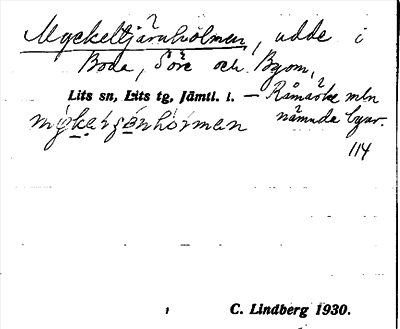 Myckeltjärnholmen, udde i
Boda, Söre och Byom,
Lits sn, Lits tg, Jämtl. l. — Råmärke mln
nämnda byar.
114
C. Lindberg 1930.